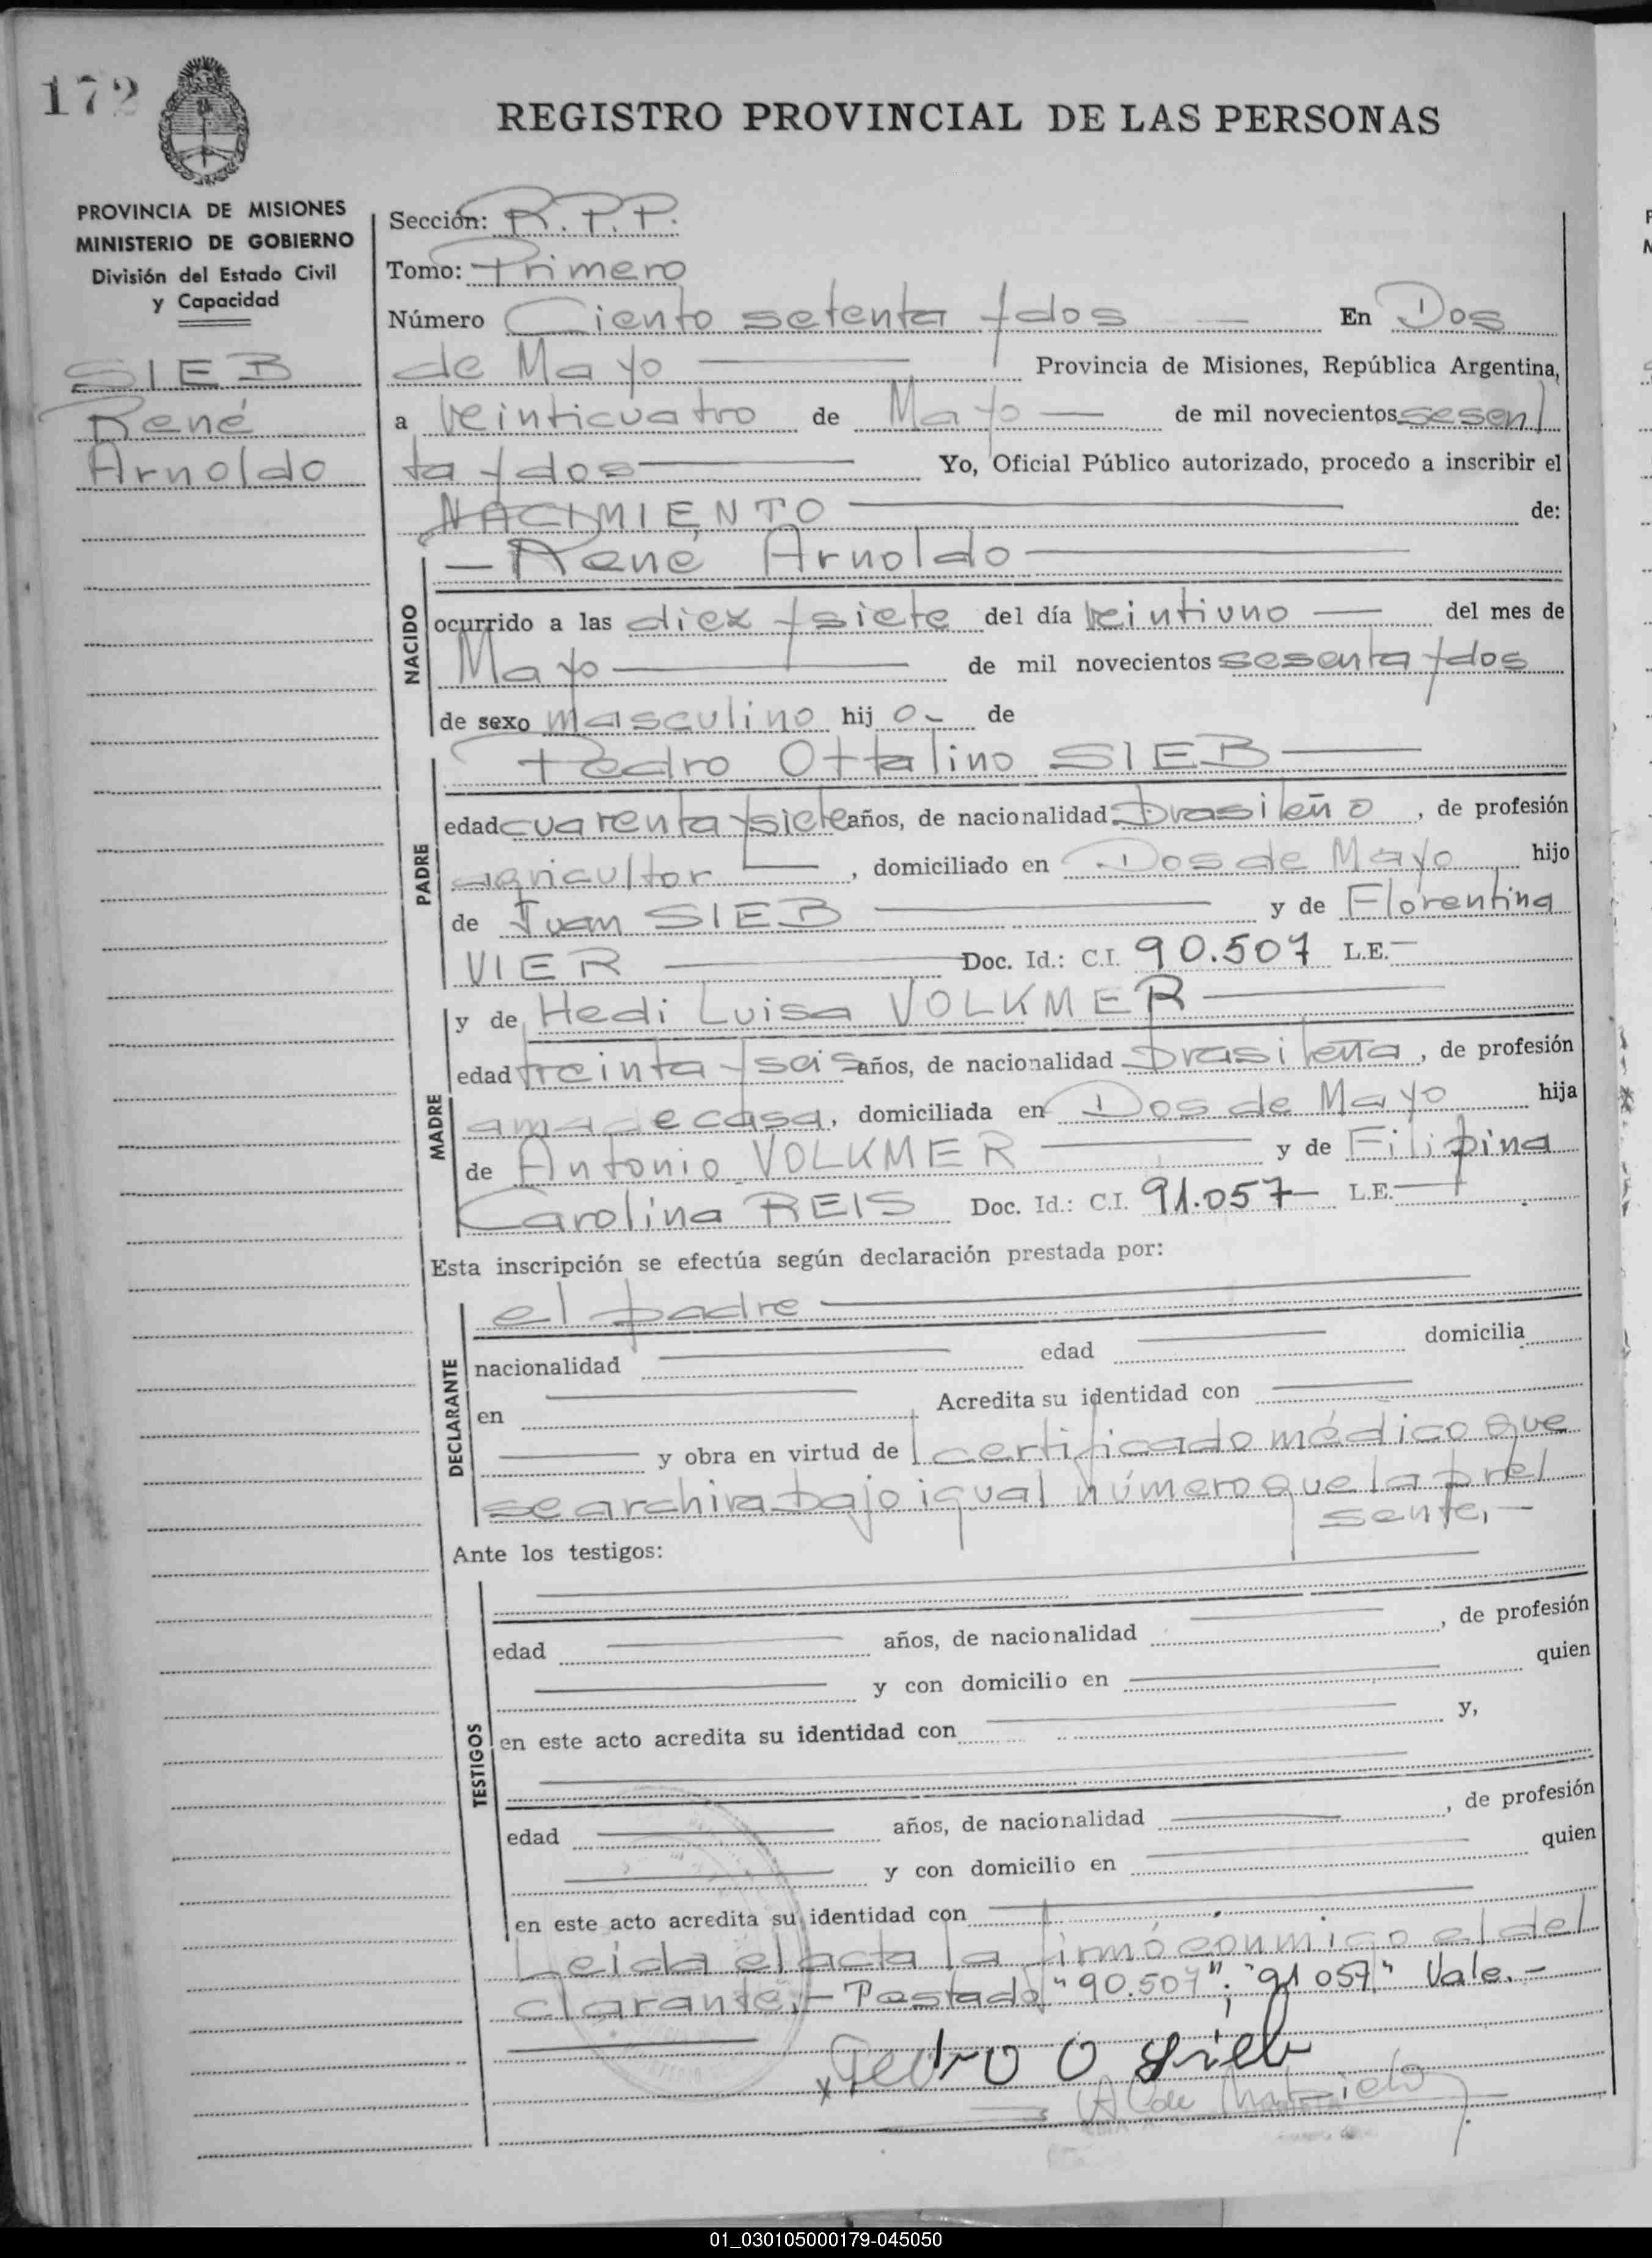 172
REGISTRO PROVINCIAL DE LAS PERSONAS
PROVINCIA DE MISIONES
MINISTERIO DE GOBIERNO
División del Estado Civil
y Capacidad
SIEB
René
Arnoldo
Sección: R.P.P.
Tomo: Primero
Número Ciento setenta y dos — En Dos
de Mayo — Provincia de Misiones, República Argentina,
a veinticuatro de Mayo — de mil novecientos sesen
ta y dos — Yo, Oficial Público autorizado, procedo a inscribir el
NACIMIENTO — de:
NACIDO
— René Arnoldo —
ocurrido a las diez y siete del día veintiuno — del mes de
Mayo — de mil novecientos sesenta y dos
de sexo masculino hij o.- de
PADRE
Pedro Ottalino SIEB —
edad cuarenta y siete años, de nacionalidad brasileño, de profesión
agricultor —, domiciliado en Dos de Mayo hijo
de Juan SIEB — y de Florentina
VIER — Doc. Id.: C.I. 90.507 L.E. —
MADRE
y de Hedi Luisa VOLKMER —
edad treinta y seis años, de nacionalidad brasileña, de profesión
ama de casa, domiciliada en Dos de Mayo hija
de Antonio VOLKMER — y de Filipina
Carolina REIS Doc. Id.: C.I. 91.057 — L.E. —
Esta inscripción se efectúa según declaración prestada por:
DECLARANTE
el padre —
nacionalidad — edad — domicilia
en — Acredita su identidad con —
— y obra en virtud de certificado médico que
se archiva bajo igual número que la pre
sente.—
Ante los testigos:
TESTIGOS
edad — años, de nacionalidad —, de profesión
— y con domicilio en — quien
en este acto acredita su identidad con — y,
edad — años, de nacionalidad —, de profesión
— y con domicilio en — quien
en este acto acredita su identidad con —
Leida el acta la firmó conmigo el de
clarante.- Testado "90.507"; "91057" Vale.-
x Pedro O Sieb
01_030105000179-045050